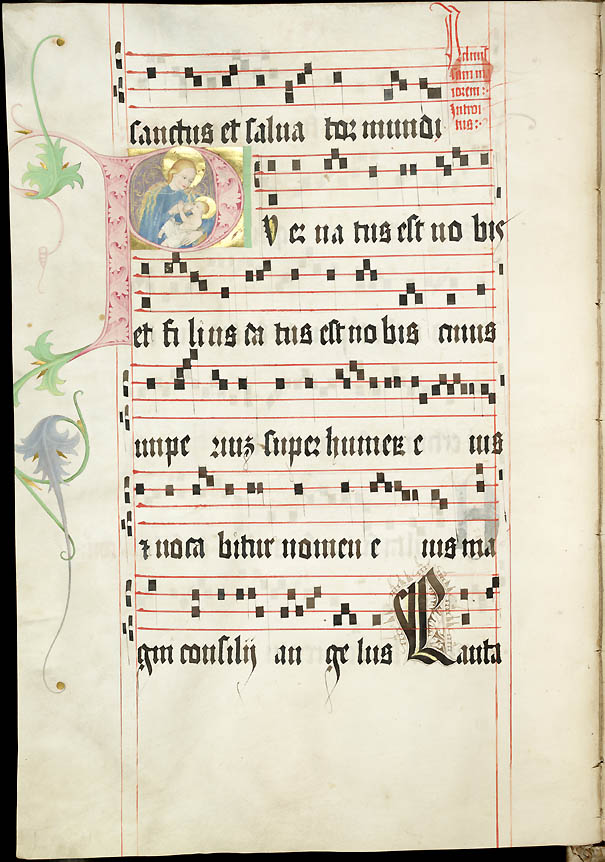 sanctus et salua tor mundi
iorem :
Introi
tus :
P V er na tus est no bis
et fi lius da tus est no bis cuius
impe riuʒ super e ius
⁊ voca bitur nomen e ius ma
gni consilij an ge lus Canta